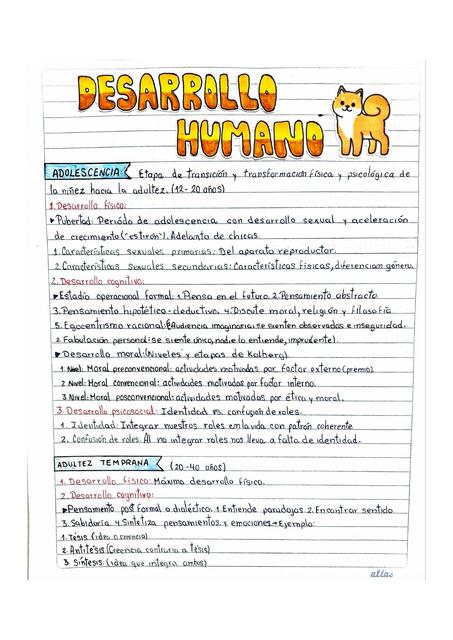 DESARROLLO
HUMANO
ADOLESCENCIA: Etapa de transición y transformación física y psicológica de
la niñez hacia la adultez. (12-20 años)
1. Desarrollo físico:
▸Pubertad: Periódo de adolescencia con desarrollo sexual y aceleración
de crecimiento ("estirón"). Adelanto de chicas.
1. Características sexuales primarias: Del aparato reproductor.
2. Características sexuales secundarias: Características físicas, diferencian género.
2. Desarrollo cognitivo:
▸Estadío operacional formal: 1. Piensa en el futuro 2. Pensamiento abstracto
3. Pensamiento hipotético-deductivo. 4. Discute moral, religión y filosofía
5. Egocentrismo racional: (Audiencia imaginaria: se sienten observados e inseguridad.
2. Fabulación personal: se siente único, nadie lo entiende, imprudente).
▸Desarrollo moral: (Niveles y etapas de Kolberg).
1. Nivel: Moral preconvencional: actividades motivadas por factor externo (premio)
2. Nivel: Moral convencional: actividades motivadas por factor interno.
3. Nivel: Moral posconvencional: actividades motivadas por ética y moral.
3. Desarrollo psicosocial: Identidad vs. confusión de roles.
1. Identidad: Integrar nuestros roles en la vida con patrón coherente.
2. Confusión de roles: Al no integrar roles nos lleva a falta de identidad.
ADULTEZ TEMPRANA (20-40 años)
1. Desarrollo físico: Máximo desarrollo físico.
2. Desarrollo cognitivo:
▸Pensamiento post formal o dialéctico: 1. Entiende paradojas 2. Encontrar sentido
3. Sabiduría 4. Sintetiza pensamientos y emociones → Ejemplo:
1. Tésis (idea o creencia)
2. Antitésis (Creencia contraria a tésis)
3. Síntesis. (idea que integra ambas)
atlas